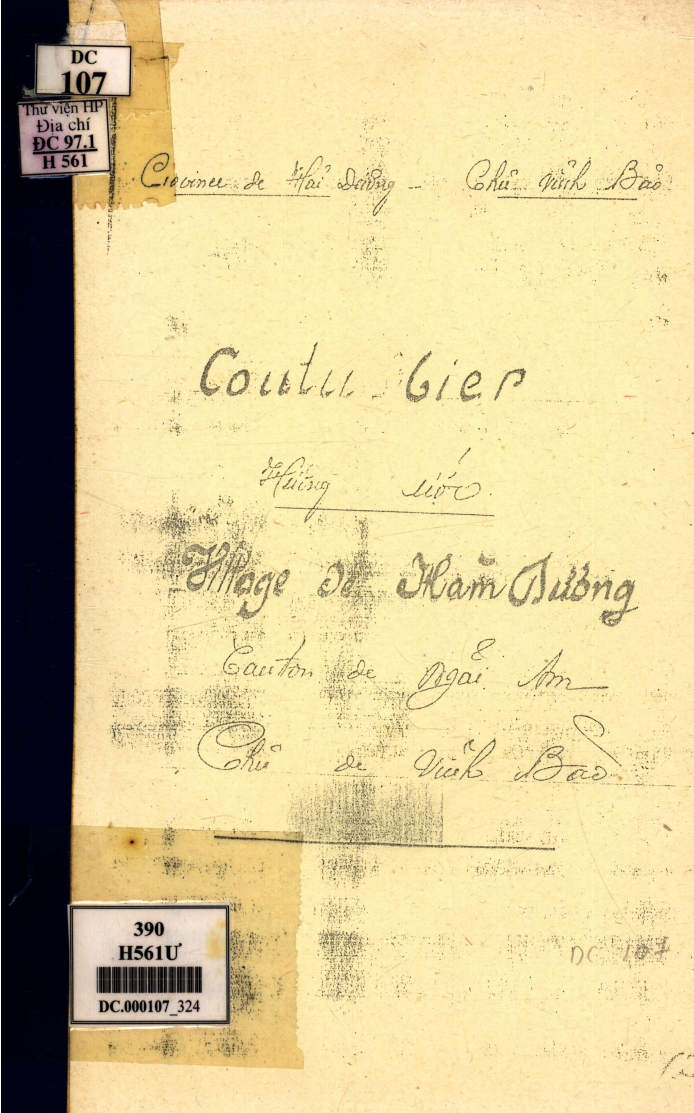 DC
107
Thư viện HP
Địa chí
ĐC 97.1
H 561
Province de Hải Dương - Phủ Vĩnh Bảo
Coutumier
Hương ước
Village de Hàm Dương
Canton de Ngãi Am
Phủ de Vĩnh Bảo
390
H561Ư
DC.000107_324
DC 107